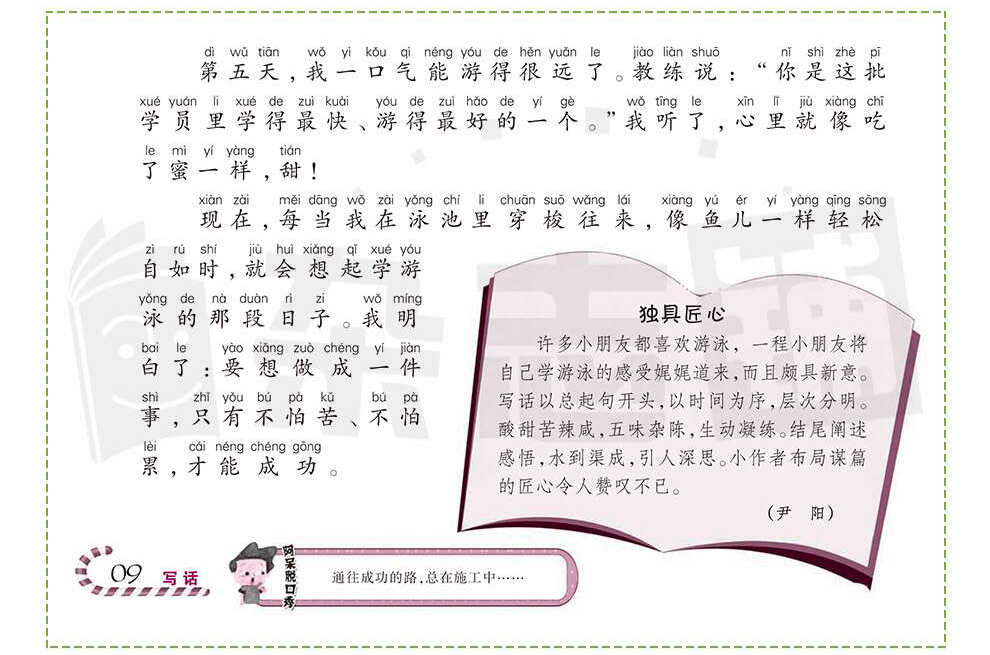 dì wǔ tiān wǒ yì kǒu qì néng yóu de hěn yuǎn le jiào liàn shuō nǐ shì zhè pī
第五天，我一口气能游得很远了。教练说：“你是这批
xué yuán li xué de zuì kuài yóu de zuì hǎo de yí gè wǒ tīng le xīn lǐ jiù xiàng chī
学员里学得最快、游得最好的一个。”我听了，心里就像吃
le mì yí yàng tián
了蜜一样，甜！
xiàn zài měi dāng wǒ zài yǒng chí li chuān suō wǎng lái xiàng yú ér yí yàng qīng sōng
现在，每当我在泳池里穿梭往来，像鱼儿一样轻松
zì rú shí jiù huì xiǎng qǐ xué yóu
自如时，就会想起学游
yǒng de nà duàn rì zi wǒ míng
泳的那段日子。我明
bai le yào xiǎng zuò chéng yí jiàn
白了：要想做成一件
shì zhǐ yǒu bú pà kǔ bú pà
事，只有不怕苦、不怕
lèi cái néng chéng gōng
累，才能成功。
独具匠心
许多小朋友都喜欢游泳，一程小朋友将
自己学游泳的感受娓娓道来，而且颇具新意。
写话以总起句开头，以时间为序，层次分明。
酸甜苦辣咸，五味杂陈，生动凝练。结尾阐述
感悟，水到渠成，引人深思。小作者布局谋篇
的匠心令人赞叹不已。
（尹 阳）
09 写话
阿呆脱口秀
通往成功的路，总在施工中……